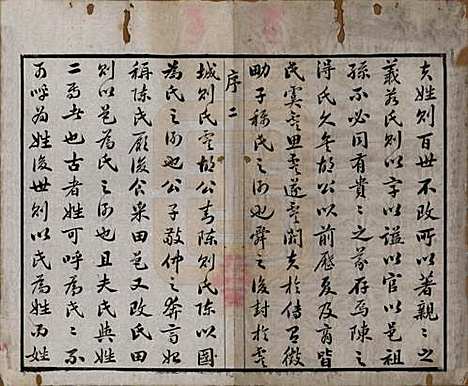 夫姓則百世不改所以著親〻之
義若氏則以字以謚以官以邑祖
孫不必同有貴〻之義存焉陳之
得氏久矣胡公以前歷夏及商皆
氏虞虞思虞遂虞閼父於傳有徵
子稱氏之例也舜之後封於虞
序二
城則氏虞胡公封陳則氏陳以國
為氏之例也公子敬仲之奔齊始
稱陳氏厥後食采田邑又改氏田
則以邑為氏之例也且夫氏與姓
二焉者也古者姓可呼為氏〻不
可呼為姓後世則以氏為姓而姓